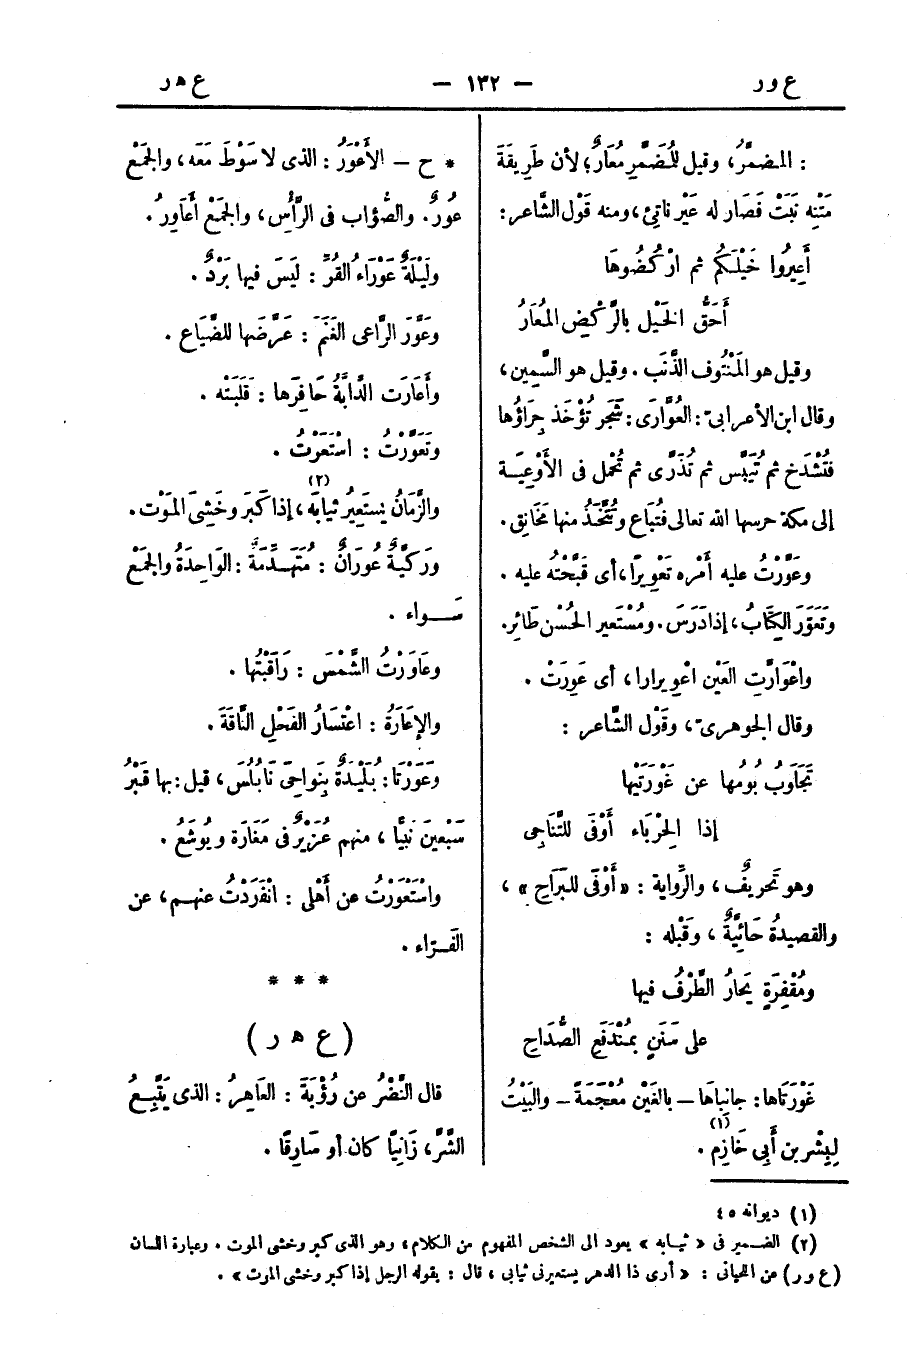 ع ور — ١٣٢ — ع ه ر
: المضمَّرُ، وقيل للمُضَمَّرِ مُعَارٌ؛ لأن طَرِيقَةَ
مَتْنِه نَبَتْ فَصَار له عَيْر ناتِئ، ومنه قَوْل الشَّاعر:
أَعِيرُوا خَيْلَكُم ثم ارْكُضُوهَا
أَحَقُّ الخَيْل بالرَّكْضِ المُعَارُ
وقيل هو المَنْتُوف الذَّنَب. وقيل هو السَّمِين،
وقال ابن الأعرابىّ: العُوَّارَى: شَجَر تُؤْخَذ جِرَاؤُها
فتُشْدَخ ثم تُيَبَّس ثم تُذَرَّى ثم تُحْمل فى الأَوْعِيَة
إلى مكة حرسها الله تعالى فتُبَاع وتُتَّخَذُ منها مَخَانِق.
وعَوَّرْتُ عليه أَمْره تَعْوِيرًا، أى قَبَّحْتُه عليه.
وتَعَوَّرَ الكِتَابُ، إذا دَرَسَ. ومُسْتَعير الحُسْن طَائر.
واعْوَارَّتِ العَيْن اعْوِيرارا، أى عَوِرَتْ.
وقال الجوهرىّ، وقَوْل الشَّاعر:
تَجَاوَبُ بُومُها عن عَوْرَتَيْها
إذا الحِرْبَاء أَوْفَى للتَّنَاجِى
وهو تَحْرِيفٌ، والرِّواية: «أَوْفَى للبَرَاحِ»،
والقصيدةُ حَائِيَّةٌ، وقَبْله:
ومُقْفِرَةٍ يَحَارُ الطَّرْفُ فيها
على سَنَنٍ بمُنْدَفَعِ الصُّدَاحِ
غَوْرَتَاها: جانباهَا — بالغَيْن مُعْجَمَةً — والبَيْتُ
لبِشْر بن أَبِى خَازِم(١).
* ح — الأَعْوَرُ: الذى لا سَوْطَ مَعَه، والجَمْع
عُورٌ. والصُّؤَاب فى الرَّأْس، والجَمْع أَعَاوِرُ.
ولَيْلَةٌ عَوْرَاءُ القُرِّ: لَيْسَ فيها بَرْدٌ.
وعَوَّرَ الرَّاعِى الغَنَمَ: عَرَّضَها للضَّيَاع.
وأَعَارَت الدَّابَّةُ حَافِرَها: قَلَبَتْه.
وتَعَوَّرْتُ: اسْتَعَرْتُ.
والزَّمَانُ يَسْتَعِيرُ ثيابَه(٢)، إذا كَبِرَ وخَشِىَ المَوْت.
ورَكِيَّةٌ عُورَانٌ: مُتَهَدِّمَةٌ: الوَاحِدَةُ والجَمْع
سَواء.
وعَاوَرْتُ الشَّمْسَ: رَاقَبْتُها.
والإعَارَةُ: اعْتِسَارُ الفَحْلِ النَّاقَةَ.
وعَوَرْتَا: بُلَيْدَةٌ بنَوَاحِى نَابُلُسَ، قيل: بها قَبْرُ
سَبْعِينَ نَبِيًّا، منهم عُزَيْرٌ فى مَغَارَة ويُوشَعُ.
واسْتَعْوَرْتُ عن أَهْلى: انْفَرَدْتُ عنهم، عن
الفَرّاء.
* * *
(ع ه ر)
قال النَّضْرُ عن رُؤْبَةَ: العَاهِرُ: الذى يَتَّبِعُ
الشَّرَّ، زَانِيًا كان أو سَارِقًا.
(١) ديوانه ٤٥
(٢) الضمير فى «ثيابه» يعود الى الشخص المفهوم من الكلام، وهو الذى كبر وخشى الموت. وعبارة اللسان
(ع و ر) عن اللحيانى: «أرى ذا الدهر يستعيرنى ثيابى، قال: يقوله الرجل إذا كبر وخشى الموت».